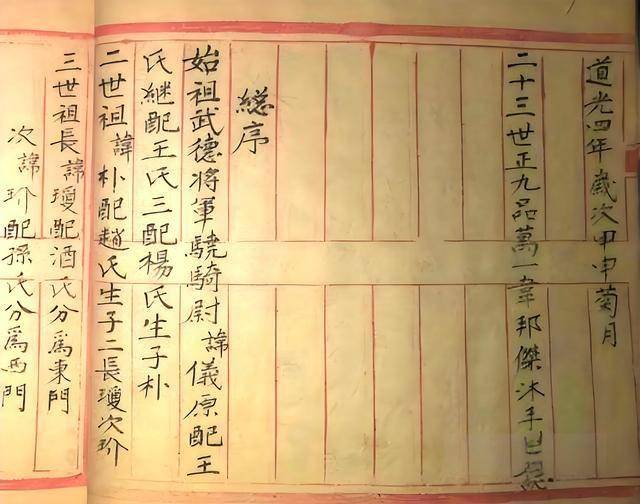 道光四年歲次甲申菊月
二十三世正九品萬一韋邦傑沐手
總序
始祖武德將軍驍騎尉諱儀原配王
氏繼配王氏三配楊氏生子朴
二世祖諱朴配趙氏生子二長瓊次玠
三世祖長諱瓊配酒氏分爲東門
次諱玠配孫氏分爲西門